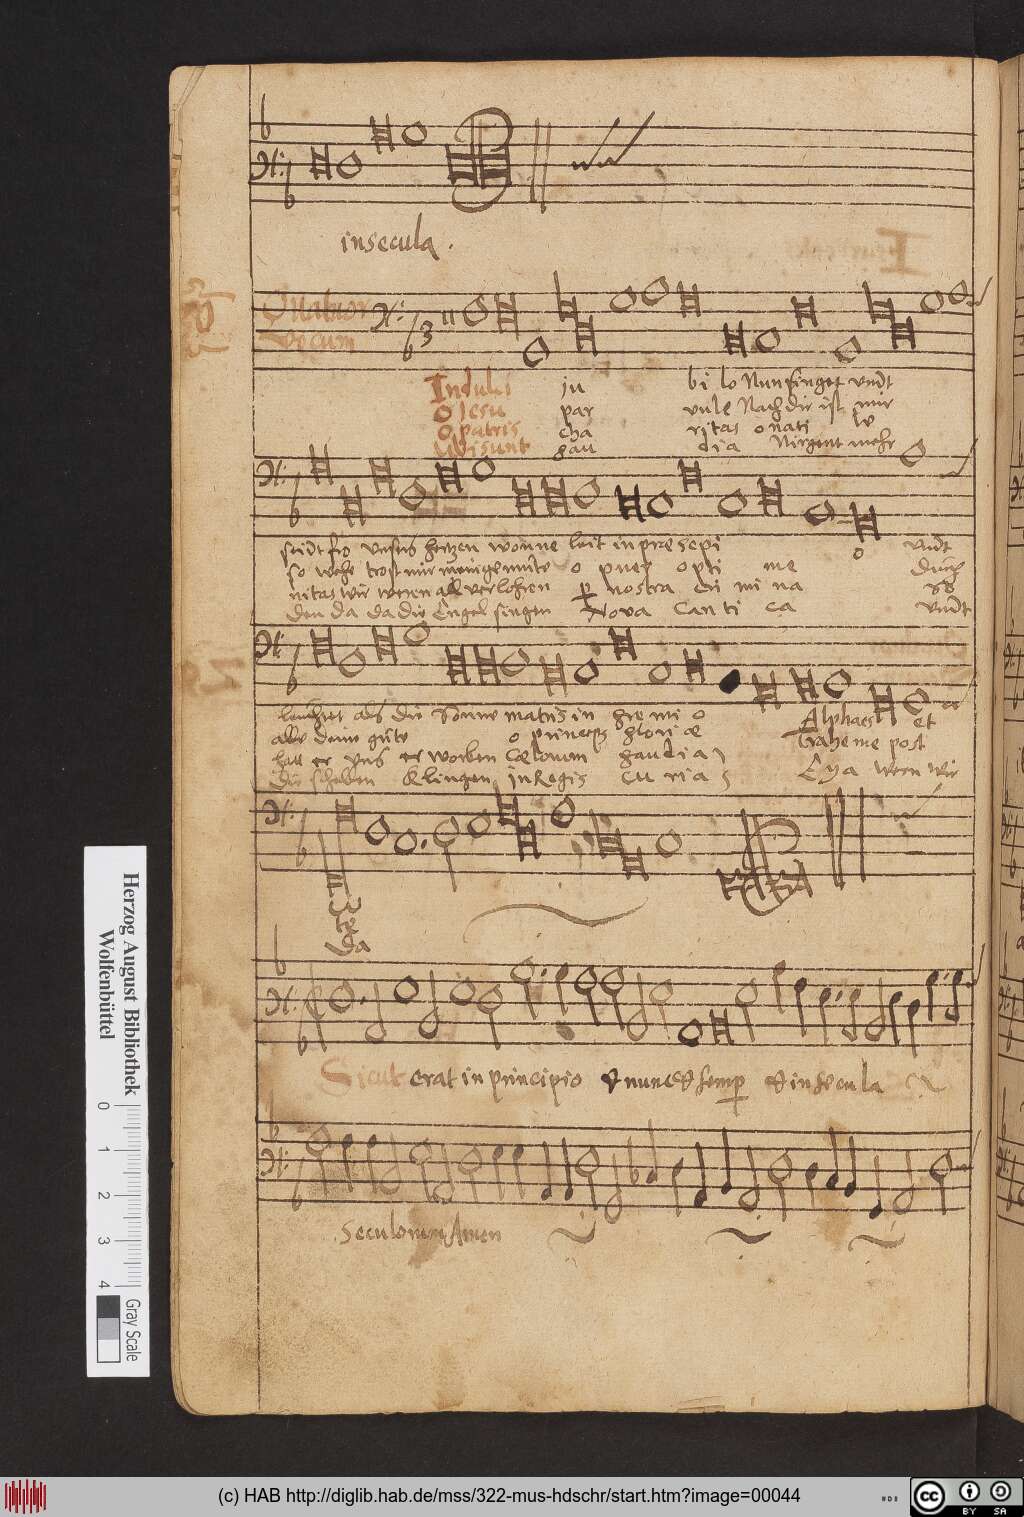 in secula.
Quatuor
Vocum
3
In dulci ju bi lo Nun singet undt
O Jesu par vule Nach dir ist mir
O patris cha ritas o nati le
Ubi sunt gau dia Nirgent mehr
seidt fro unsers hertzen wonne leit in præ sepi o undt
so wehe trost mir mein gemüte o puer opti me durch
nitas wir weren all verlohren per nostra cri mi na
den da da die Engel singen Nova Can ti ca undt
leuchtet als die Sonne matris in gre mi o Alpha es et
alle deine güte o princeps glori æ Trahe me post
hatt er uns er worben Cœlorum gaudia Eya weren wir
die schellen klingen in Regis cu ria
ω
te
da
Sicut erat in principio & nunc & semper & in secula
Seculorum Amen
Herzog August Bibliothek
Wolfenbüttel
0 1 2 3 4
Gray Scale
(c) HAB http://diglib.hab.de/mss/322-mus-hdschr/start.htm?image=00044
cc BY SA